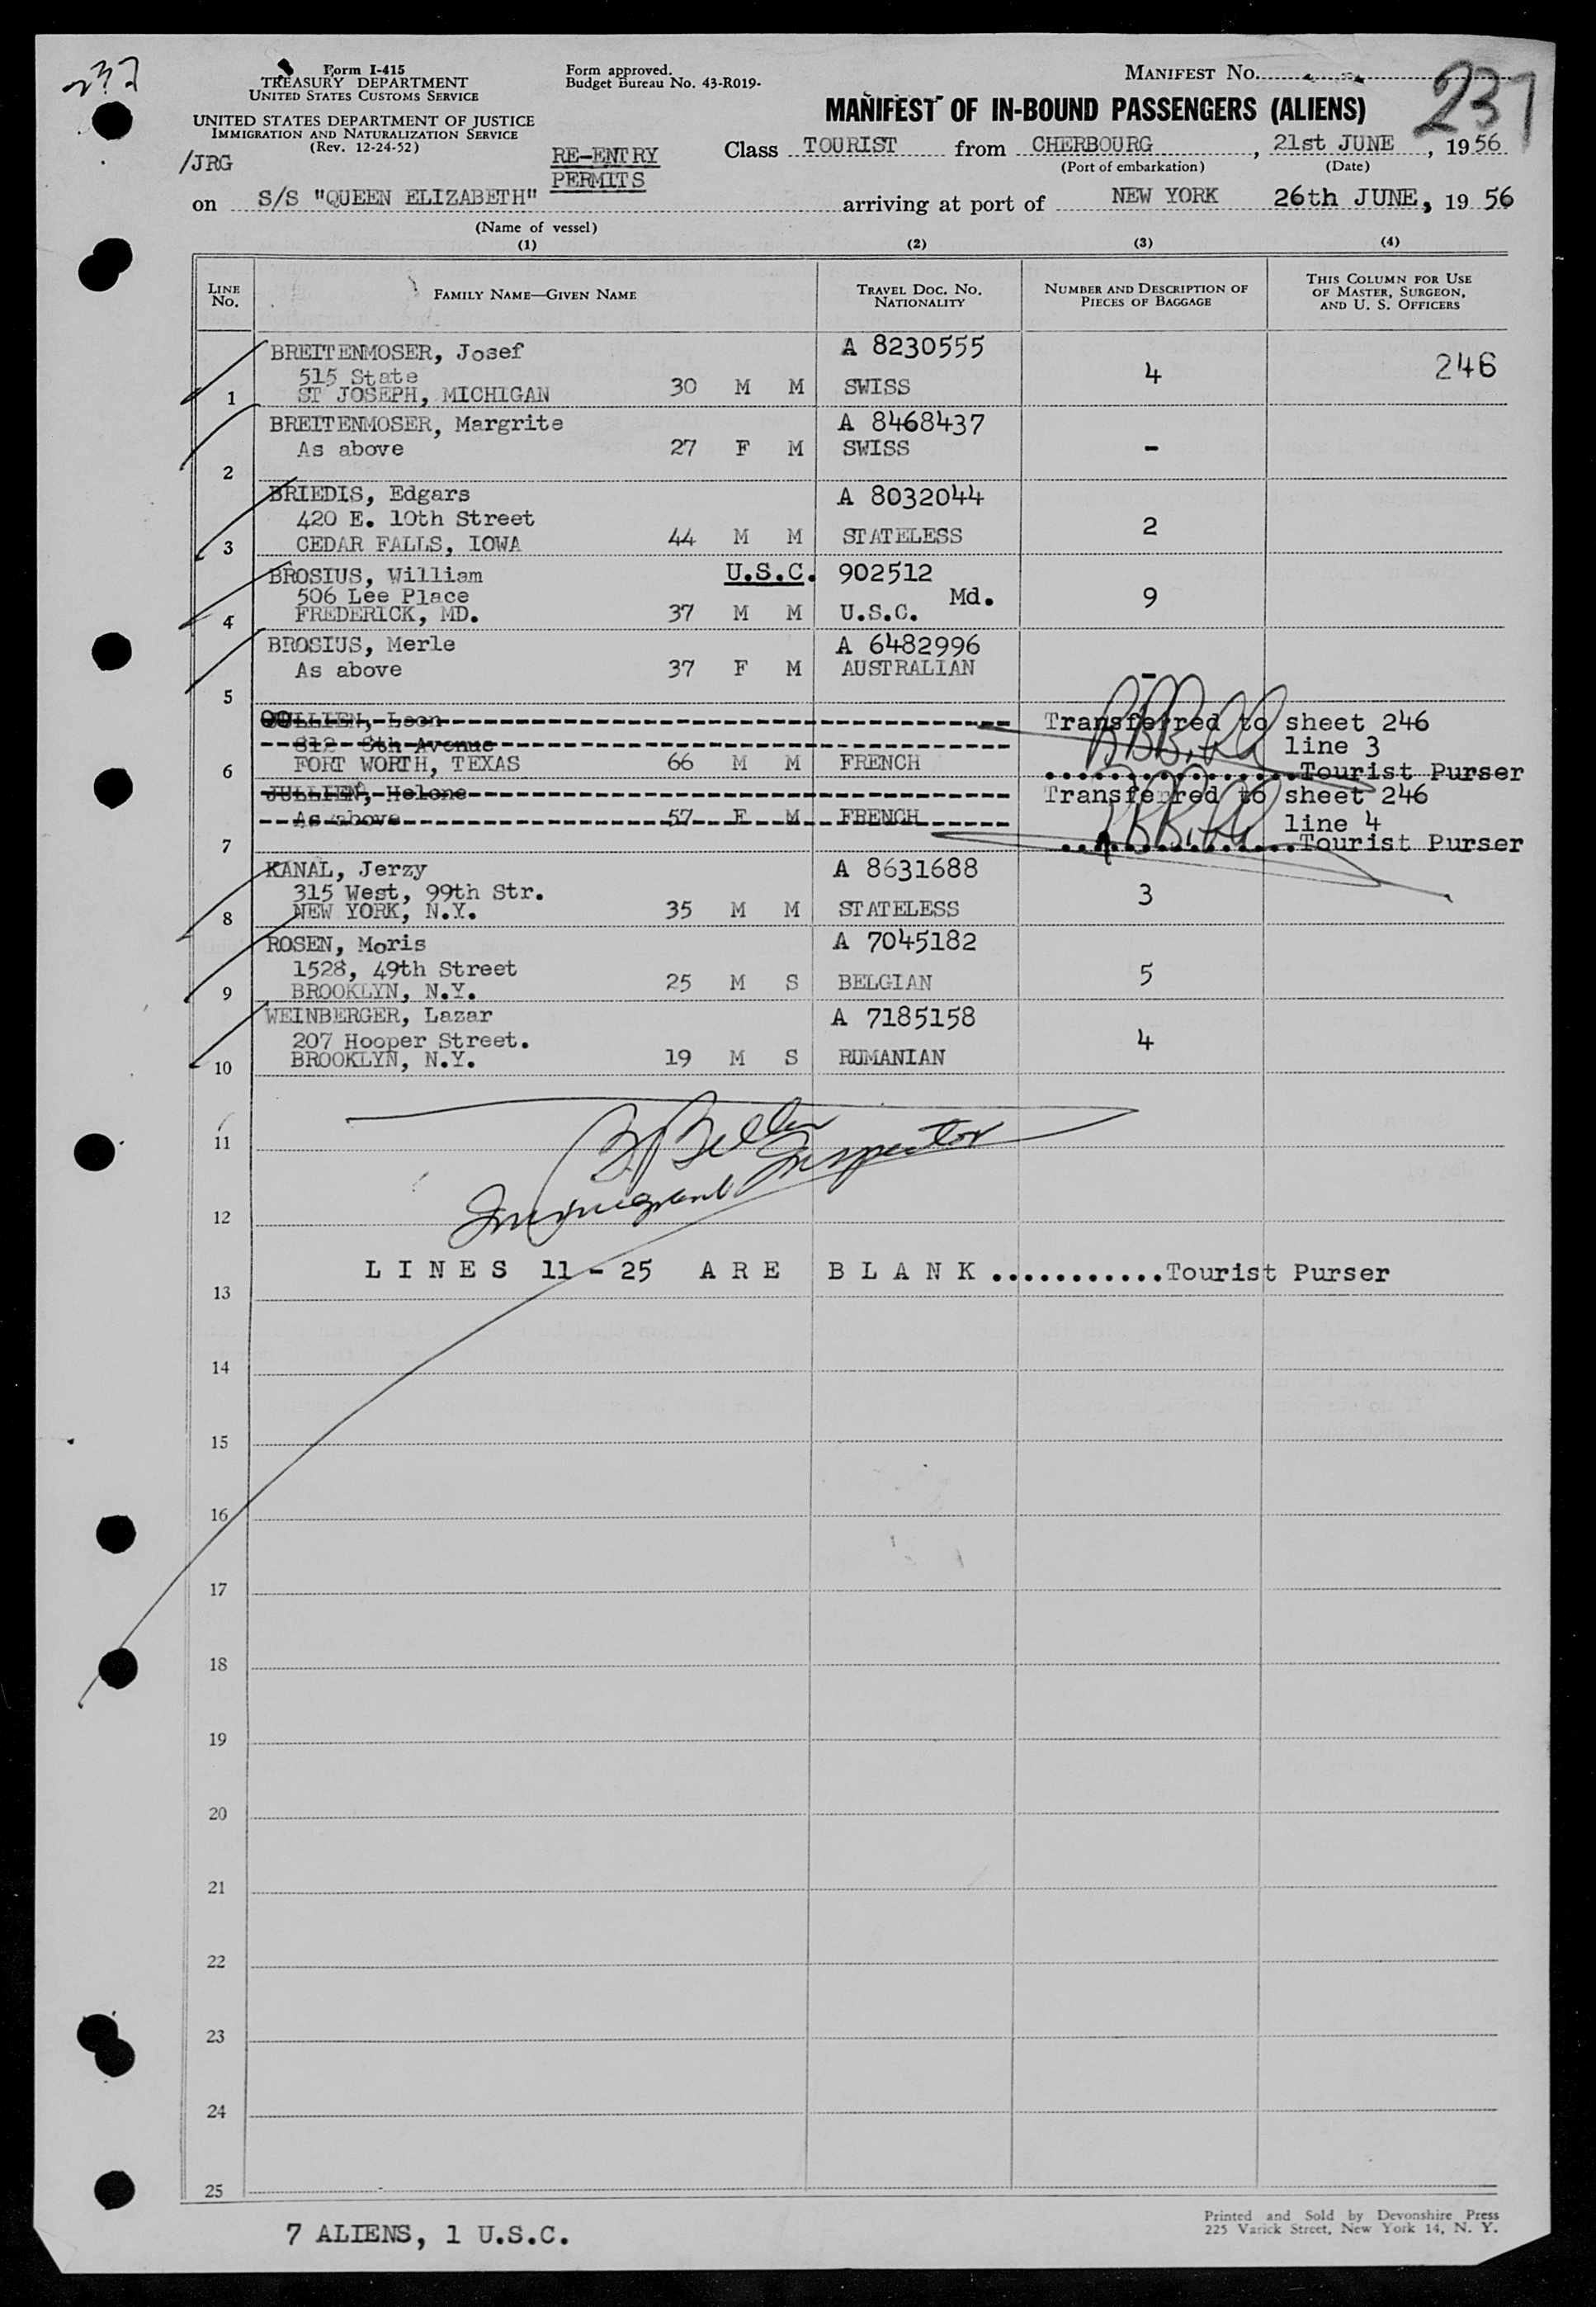 237
Form I-415
TREASURY DEPARTMENT
UNITED STATES CUSTOMS SERVICE
UNITED STATES DEPARTMENT OF JUSTICE
IMMIGRATION AND NATURALIZATION SERVICE
(Rev. 12-24-52)
/JRG
Form approved.
Budget Bureau No. 43-R019-
MANIFEST No.
237
MANIFEST OF IN-BOUND PASSENGERS (ALIENS)
RE-ENTRY
PERMITS
Class TOURIST from CHERBOURG, 21st JUNE, 1956
(Port of embarkation) (Date)
on S/S "QUEEN ELIZABETH" arriving at port of NEW YORK 26th JUNE, 19 56
(Name of vessel)
(1) (2) (3) (4)
LINE No. FAMILY NAME—GIVEN NAME TRAVEL DOC. No. NATIONALITY NUMBER AND DESCRIPTION OF PIECES OF BAGGAGE THIS COLUMN FOR USE OF MASTER, SURGEON, AND U. S. OFFICERS
BREITENMOSER, Josef A 8230555
515 State 4 246
1 ST JOSEPH, MICHIGAN 30 M M SWISS
BREITENMOSER, Margrite A 8468437
As above 27 F M SWISS -
2
BRIEDIS, Edgars A 8032044
420 E. 10th Street 2
3 CEDAR FALLS, IOWA 44 M M STATELESS
BROSIUS, William U.S.C. 902512
506 Lee Place Md. 9
4 FREDERICK, MD. 37 M M U.S.C.
BROSIUS, Merle A 6482996
As above 37 F M AUSTRALIAN -
5
JULLIEN, Leon Transferred to sheet 246
812 8th Avenue line 3
6 FORT WORTH, TEXAS 66 M M FRENCH Tourist Purser
JULLIEN, Helene Transferred to sheet 246
As above 57 F M FRENCH line 4
7 Tourist Purser
KANAL, Jerzy A 8631688
315 West, 99th Str. 3
8 NEW YORK, N.Y. 35 M M STATELESS
ROSEN, Moris A 7045182
1528, 49th Street 5
9 BROOKLYN, N.Y. 25 M S BELGIAN
WEINBERGER, Lazar A 7185158
207 Hooper Street. 4
10 BROOKLYN, N.Y. 19 M S RUMANIAN
11
Immigrant Inspector
12
LINES 11 - 25 ARE BLANK............Tourist Purser
13
14
15
16
17
18
19
20
21
22
23
24
25
7 ALIENS, 1 U.S.C.
Printed and Sold by Devonshire Press
225 Varick Street, New York 14, N. Y.